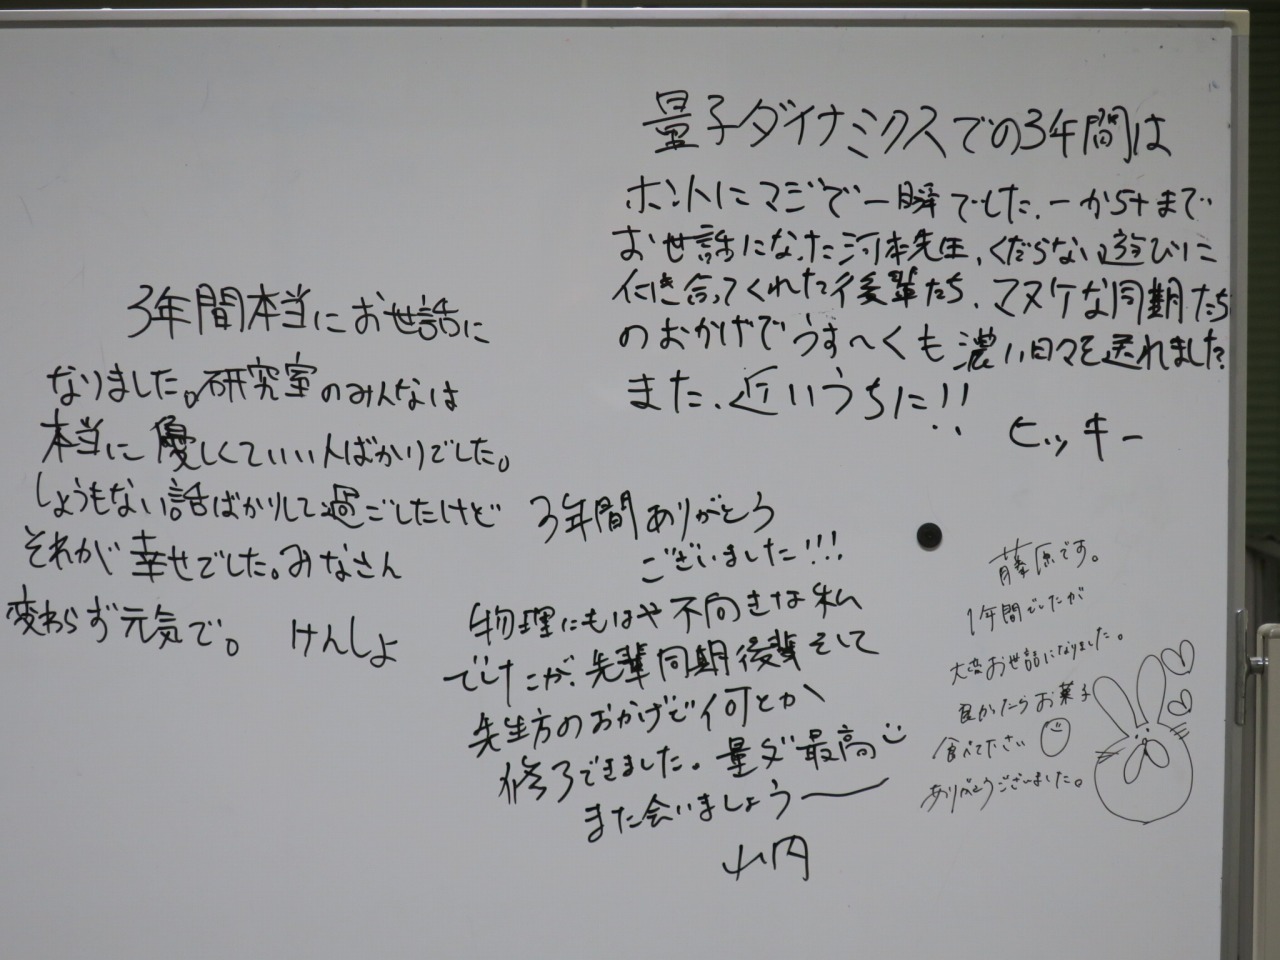 量子ダイナミクスでの3年間は
ホントにマジで一瞬でした.一から十まで
お世話になった河本先生、くだらない遊びに
付き合ってくれた後輩たち、マヌケな同期たち
のおかげでうす〜くも濃い日々を送れました
また、近いうちに!!
ヒッキー
3年間本当にお世話に
なりました。研究室のみんなは
本当に優しくていい人ばかりでした。
しょうもない話ばかりして過ごしたけど
それが幸せでした。みなさん
変わらず元気で。 けんしょ
3年間ありがとう
ございました!!!
物理にもはや不向きな私
でしたが、先輩同期後輩そして
先生方のおかげで何とか
修了できました。量ダ最高
また会いましょうー
山内
藤原です。
1年間でしたが
大変お世話になりました。
良かったらお菓子
食べて下さい
ありがとうございました。